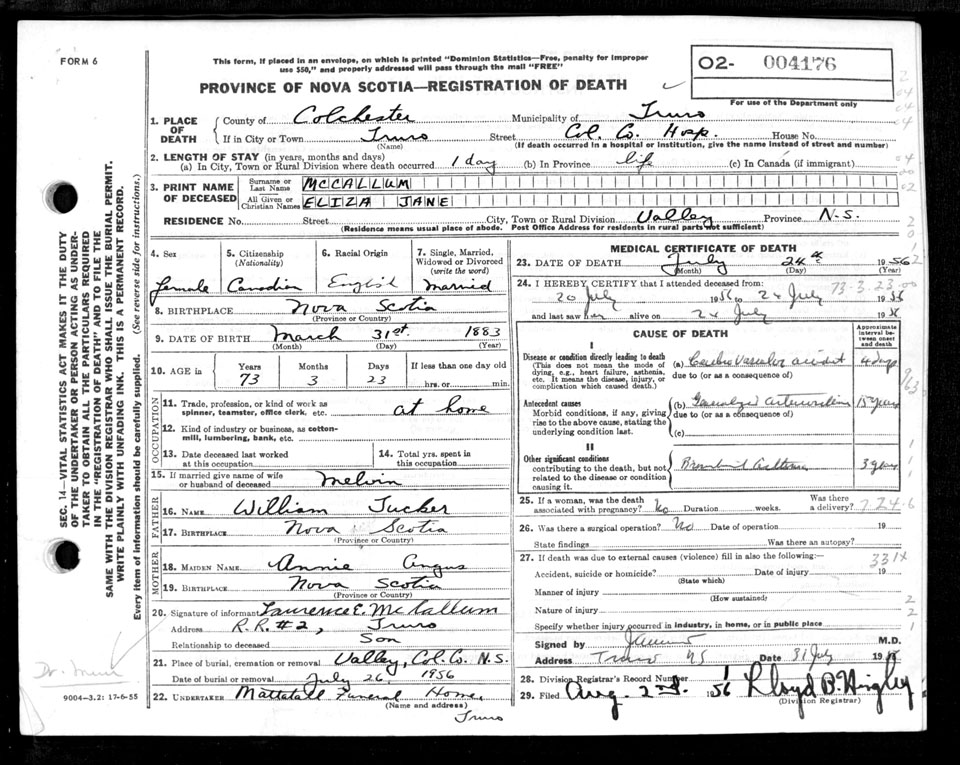 FORM 6
This form, if placed in an envelope, on which is printed "Dominion Statistics—Free, penalty for improper
use $50," and properly addressed will pass through the mail "FREE"
PROVINCE OF NOVA SCOTIA—REGISTRATION OF DEATH
02- 004176
For use of the Department only
1. PLACE OF DEATH
County of Colchester Municipality of Truro
If in City or Town Truro Street Col. Co. Hosp. House No.
(Name) (If death occurred in a hospital or institution, give the name instead of street and number)
2. LENGTH OF STAY (in years, months and days)
(a) In City, Town or Rural Division where death occurred 1 day (b) In Province life (c) In Canada (if immigrant)
3. PRINT NAME OF DECEASED
Surname or Last Name MCCALLUM
All Given or Christian Names ELIZA JANE
RESIDENCE No. Street City, Town or Rural Division Valley Province N.S.
(Residence means usual place of abode. Post Office Address for residents in rural parts not sufficient)
4. Sex 5. Citizenship (Nationality) 6. Racial Origin 7. Single, Married, Widowed or Divorced (write the word)
female Canadian English married
8. BIRTHPLACE Nova Scotia
(Province or Country)
9. DATE OF BIRTH March 31st. 1883
(Month) (Day) (Year)
10. AGE in Years Months Days If less than one day old
73 3 23 hrs. or min.
OCCUPATION
11. Trade, profession, or kind of work as
spinner, teamster, office clerk, etc. at home
12. Kind of industry or business, as cotton-
mill, lumbering, bank, etc.
13. Date deceased last worked at this occupation 14. Total yrs. spent in this occupation
15. If married give name of wife
or husband of deceased Melvin
FATHER
16. NAME William Tucker
17. BIRTHPLACE Nova Scotia
(Province or Country)
MOTHER
18. MAIDEN NAME Annie Angus
19. BIRTHPLACE Nova Scotia
(Province or Country)
20. Signature of informant Laurence E. McCallum
Address R.R. #2, Truro
Relationship to deceased Son
21. Place of burial, cremation or removal Valley, Col. Co. N.S.
Date of burial or removal July 26, 1956
22. UNDERTAKER Mattatall Funeral Home,
(Name and address)
Truro
MEDICAL CERTIFICATE OF DEATH
23. DATE OF DEATH July 24th 1956
(Month) (Day) (Year)
24. I HEREBY CERTIFY that I attended deceased from: 73-3-23-00
20 July 1956 to 24 July 1956
and last saw her alive on 24 July 1956
CAUSE OF DEATH
Approximate interval between onset and death
I
Disease or condition directly leading to death
(This does not mean the mode of
dying, e.g., heart failure, asthenia,
etc. It means the disease, injury, or
complication which caused death.)
(a) Cerebro Vascular accident 4 days
due to (or as a consequence of)
Antecedent causes
Morbid conditions, if any, giving
rise to the above cause, stating the
underlying condition last.
(b) Generalized Arteriosclerosis 15 years
due to (or as a consequence of)
(c)
II
Other significant conditions
contributing to the death, but not
related to the disease or condition
causing it.
Bronchial Asthma 3 years
25. If a woman, was the death
associated with pregnancy? No Duration weeks. Was there a delivery?
7 24-6
26. Was there a surgical operation? No Date of operation 19
State findings Was there an autopsy?
27. If death was due to external causes (violence) fill in also the following:—
331X
Accident, suicide or homicide? Date of injury 19
(State which)
Manner of injury
(How sustained)
Nature of injury
Specify whether injury occurred in industry, in home, or in public place
Signed by M.D.
Address Truro NS Date 31 July 19
28. Division Registrar's Record Number 1
29. Filed Aug. 2nd. 1956 Lloyd B. Higley
(Division Registrar)
SEC. 14—VITAL STATISTICS ACT MAKES IT THE DUTY
OF THE UNDERTAKER OR PERSON ACTING AS UNDER-
TAKER TO OBTAIN ALL THE PARTICULARS REQUIRED
IN THE "REGISTRATION OF DEATH" AND TO FILE THE
SAME WITH THE DIVISION REGISTRAR WHO SHALL ISSUE THE BURIAL PERMIT.
WRITE PLAINLY WITH UNFADING INK. THIS IS A PERMANENT RECORD.
Every item of information should be carefully supplied. (See reverse side for instructions.)
9004-3.2: 17-6-55